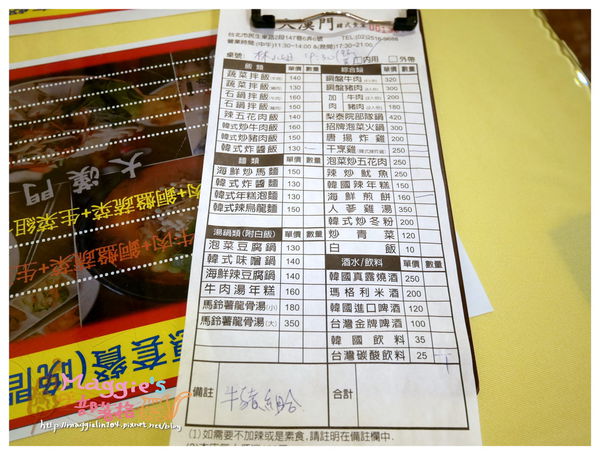 大漢門 韓式食堂
台北市民生東路2段147巷6弄6號 TEL:(02)2516-9686
營業時間:(中午)11:30~14:00 &(晚間)17:30~21:00
桌號: 林小姐 內用 外帶
飯類 單價 數量
蔬菜拌飯 140
蔬菜拌飯 130
石鍋拌飯 160
石鍋拌飯 150
辣五花肉飯 140
韓式炒牛肉飯 150
韓式炒豬肉飯 150
韓式炸醬飯 130
麵類 單價 數量
海鮮炒馬麵 150
韓式炸醬麵 130
韓式年糕泡麵 130
韓式辣烏龍麵 150
湯鍋類(附白飯) 單價 數量
泡菜豆腐鍋 130
韓式味噌鍋 130
海鮮辣豆腐鍋 140
牛肉湯年糕 160
馬鈴薯龍骨湯(小) 180
馬鈴薯龍骨湯(大) 350
綜合類 單價 數量
銅盤牛肉 320
銅盤豬肉 300
加牛肉 200
肉豬肉 180
梨泰院部隊鍋 420
招牌泡菜火鍋 300
唐揚炸雞 200
干烹雞 250
泡菜炒五花肉 250
辣炒魷魚 250
韓國辣年糕 150
海鮮煎餅 160
人蔘雞湯 350
韓式炒冬粉 200
炒青菜 100
白飯 10
酒水/飲料 單價 數量
韓國真露燒酒 250
瑪格利米酒 200
韓國進口啤酒 120
台灣金牌啤酒 100
韓國飲料 35
台灣碳酸飲料 25
備註 牛豬組合 合計
(1)如需要不加辣或是素食,請註明在備註欄中.
大漢門
牛肉+銅盤蔬菜+生菜組
銅盤蔬菜+生
套餐(晚間
Maggie's
部落格
http://maggielin204.pixnet.net/blog